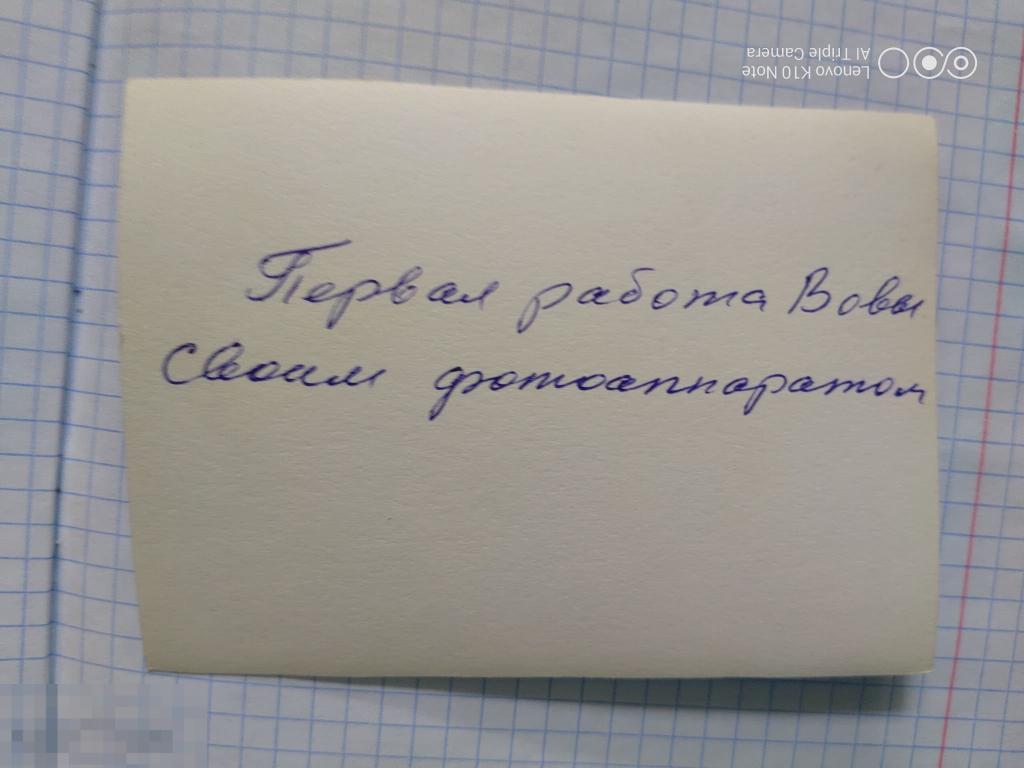 Lenovo K10 Note
AI Triple Camera
Первая работа Вовы
Своим фотоаппаратом